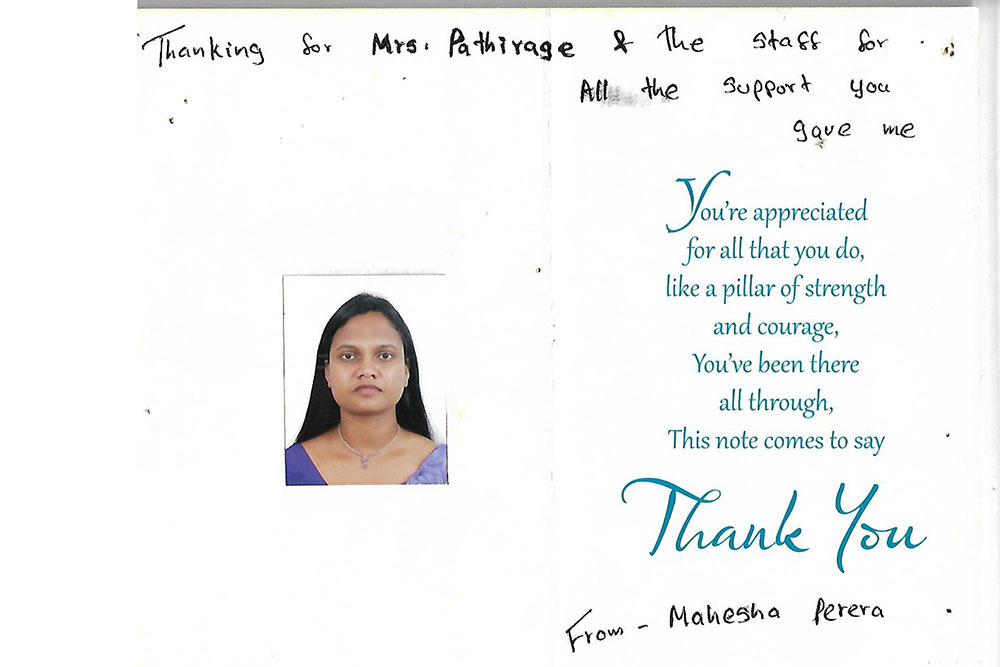 Thanking for Mrs. Pathirage & the staff for
All the support you
gave me
You're appreciated
for all that you do,
like a pillar of strength
and courage,
You've been there
all through,
This note comes to say
Thank You
From - Mahesha Perera